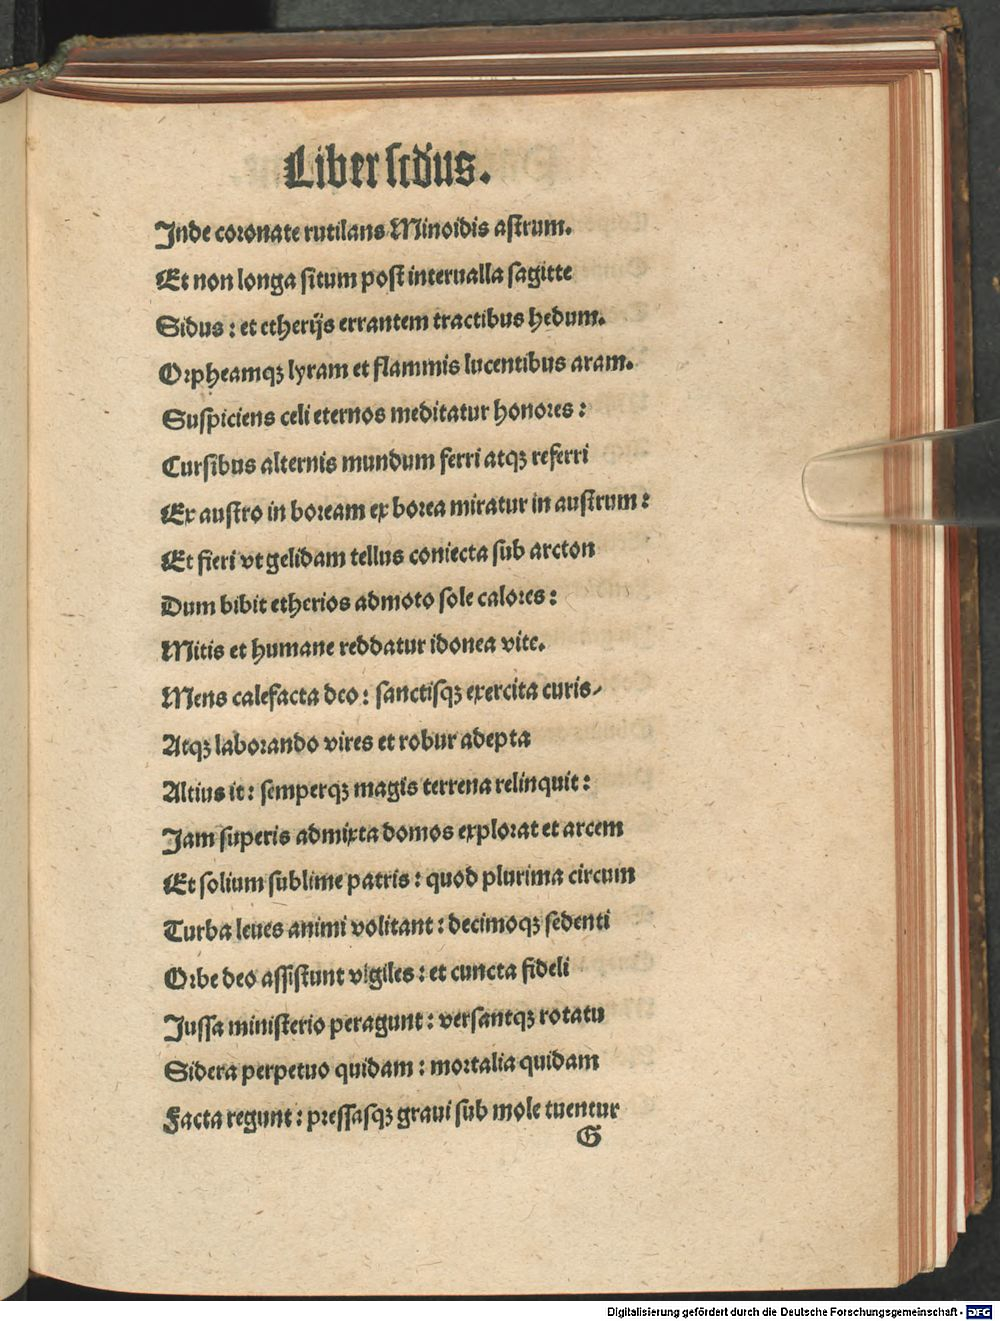 Liber scd̄us.
Inde coronate rutilans Minoidis astrum.
Et non longa situm post interualla sagitte
Sidus: et etherijs errantem tractibus hedum.
Orpheamqꝫ lyram et flammis lucentibus aram.
Suspiciens celi eternos meditatur honores:
Cursibus alternis mundum ferri atqꝫ referri
Ex austro in boream ex borea miratur in austrum:
Et fieri vt gelidam tellus coniecta sub arcton
Dum bibit etherios admoto sole calores:
Mitis et humane reddatur idonea vite.
Mens calefacta deo: sanctisqꝫ exercita curis/
Atqꝫ laborando vires et robur adepta
Altius it: semperqꝫ magis terrena relinquit:
Jam superis admixta domos explorat et arcem
Et solium sublime patris: quod plurima circum
Turba leues animi volitant: decimoqꝫ sedenti
Orbe deo assistunt vigiles: et cuncta fideli
Jussa ministerio peragunt: versantqꝫ rotatu
Sidera perpetuo quidam: mortalia quidam
Facta regunt: pressasqꝫ graui sub mole tuentur
G
Digitalisierung gefördert durch die Deutsche Forschungsgemeinschaft - DFG